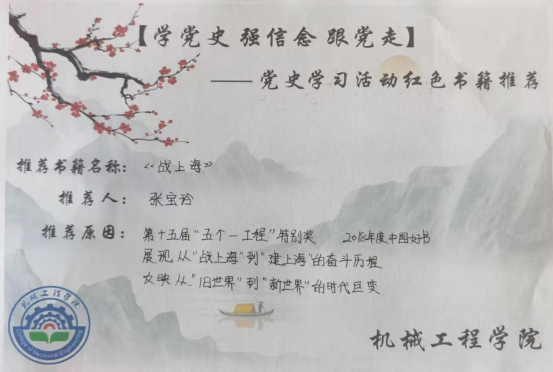 【学党史 强信念 跟党走】
——党史学习活动红色书籍推荐
推荐书籍名称：《战上海》
推荐人：张宝玲
推荐原因：第十五届“五个一工程”特别奖 2018年度中国好书
展现从“战上海”到“建上海”的奋斗历程
反映从“旧世界”到“新世界”的时代巨变
机械工程学院
机械工程学院